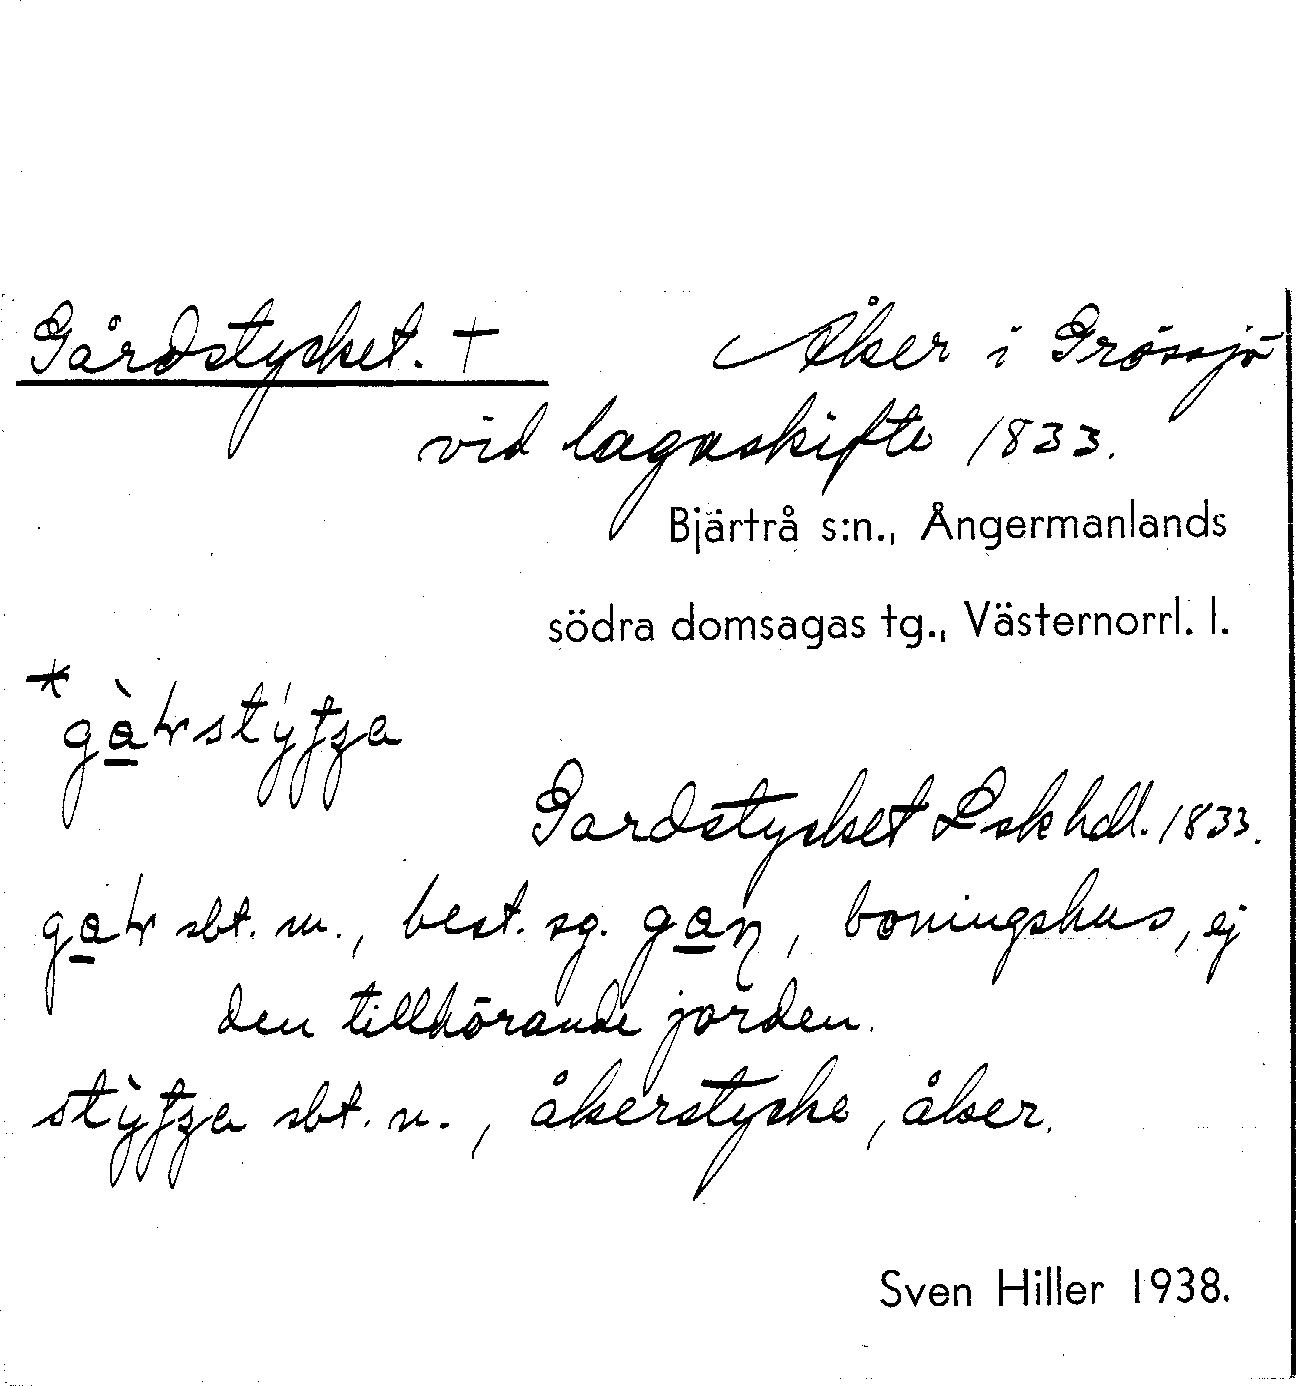 Gårdstycket. † Åker i Grössjö
vid lagaskifte 1833.
Bjärtrå s:n., Ångermanlands
södra domsagas tg., Västernorrl. l.
Gardstycket Lskhdl. 1833.
sbt. m., best. sg. boningshus, ej
den tillhörande jorden.
sbt. n., åkerstycke, åker.
Sven Hiller 1938.